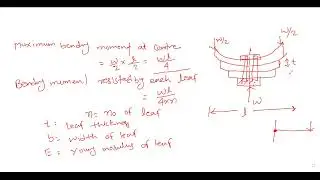 maximum bendy moment at centre
= w/2 × l/2 = wl/4
Bendy momen) resisted by each leaf
= wl/4×n
n= no of leaf
t = leaf thickness
b= width of leaf
E = young modulus of leaf
w/2
w/2
t
l
w